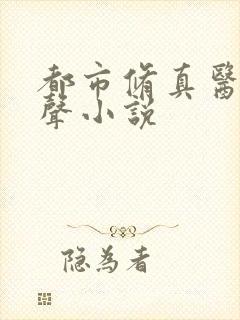 都市脩真醫
聲小説
隐為者